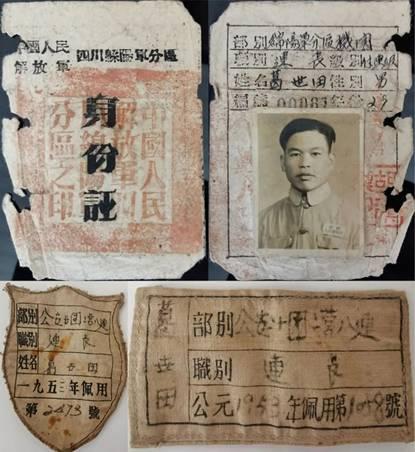 中國人民
解放軍
四川綿陽軍分區
身份証
中國人民
解放軍四川
綿陽軍
分區之印
部別綿陽軍分區機關
職別連長級別
姓名葛世田性別男
編號00087年齡25
部別公安十團二營八連
職別連長
姓名葛世田
一九五三年佩用
第2473號
葛世田
部別公安十團二營八連
職別連長
公元1953年佩用第1058號